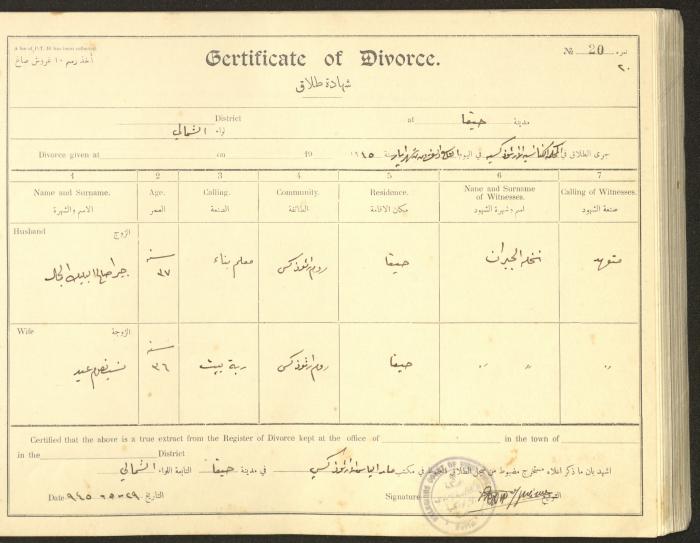 A fee of P.T. 10 has been collected
أخذ رسم ١٠ غروش صاغ
Certificate of Divorce.
№ 20 نمره
٢٠
شهادة طلاق
District at حيفا مدينة
لواء الشمالي
Divorce given at on 19 جرى الطلاق في في اليوم سنة ١٩٤٥
1 2 3 4 5 6 7
Name and Surname. Age. Calling. Community. Residence. Name and Surname of Witnesses. Calling of Witnesses.
الاسم والشهرة العمر الصنعة الطائفة مكان الاقامة اسم وشهرة الشهود صنعة الشهود
Husband الزوج
سنة ٣٧ معلم بناء روم ارثوذكس حيفا نخله الجبران متعهد
Wife الزوجة
سنة ٣٦ ربة بيت روم ارثوذكس حيفا
Certified that the above is a true extract from the Register of Divorce kept at the office of in the town of
in the District اشهد بان ما ذكر اعلاه مستخرج مضبوط من سجل الطلاق المحفوظ في مكتب في مدينة حيفا التابعة اللواء الشمالي
Date ٩٤٥-٥-٢٩ التاريخ Signature التوقيع